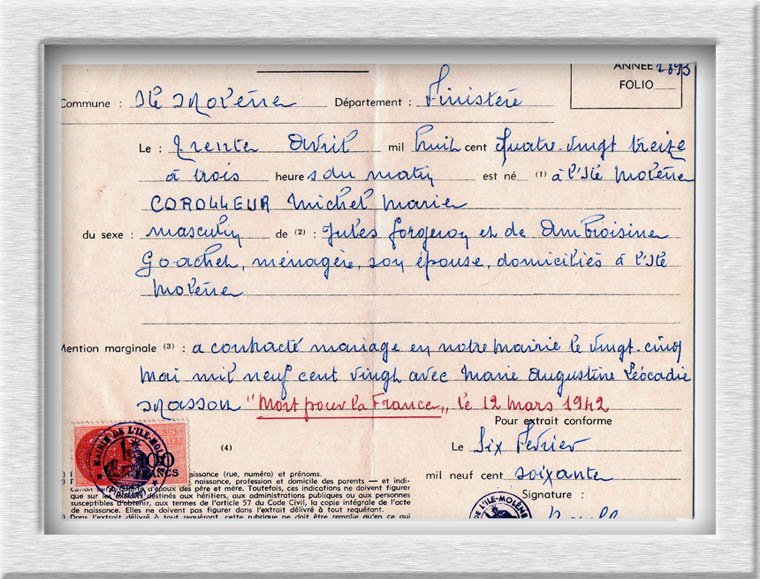 ANNÉE 1893
FOLIO
Commune : Ile Molène Département : Finistère
Le : trente Avril mil huit cent quatre-vingt treize
à trois heures du matin est né (1) à l'Ile Molène
COROLLEUR Michel Marie
du sexe : masculin de (2) : Jules forgeron et de Ambroisine
Goachet, ménagère, son épouse, domiciliés à l'Ile
Molène
Mention marginale (3) : a contracté mariage en notre mairie le vingt-cinq
mai mil neuf cent vingt avec Marie Augustine Léocadie
Masson "Mort pour la France", le 12 mars 1942
Pour extrait conforme
(4)
Le Six Février
mil neuf cent soixante
Signature :
MAIRIE DE L'ILE-MOLÈNE
100
FRANCS
naissance (rue, numéro) et prénoms.
naissance, profession et domicile des parents — et indi-
d'époux des père et mère. Toutefois, ces indications ne doivent figurer
que sur les destinés aux héritiers, aux administrations publiques ou aux personnes
susceptibles d'obtenir, aux termes de l'article 57 du Code Civil, la copie intégrale de l'acte
de naissance. Elles ne doivent pas figurer dans l'extrait délivré à tout requérant.
Dans l'extrait délivré à tout requérant, cette rubrique ne doit être remplie qu'en ce qui
DE L'ILE-MOLÈNE